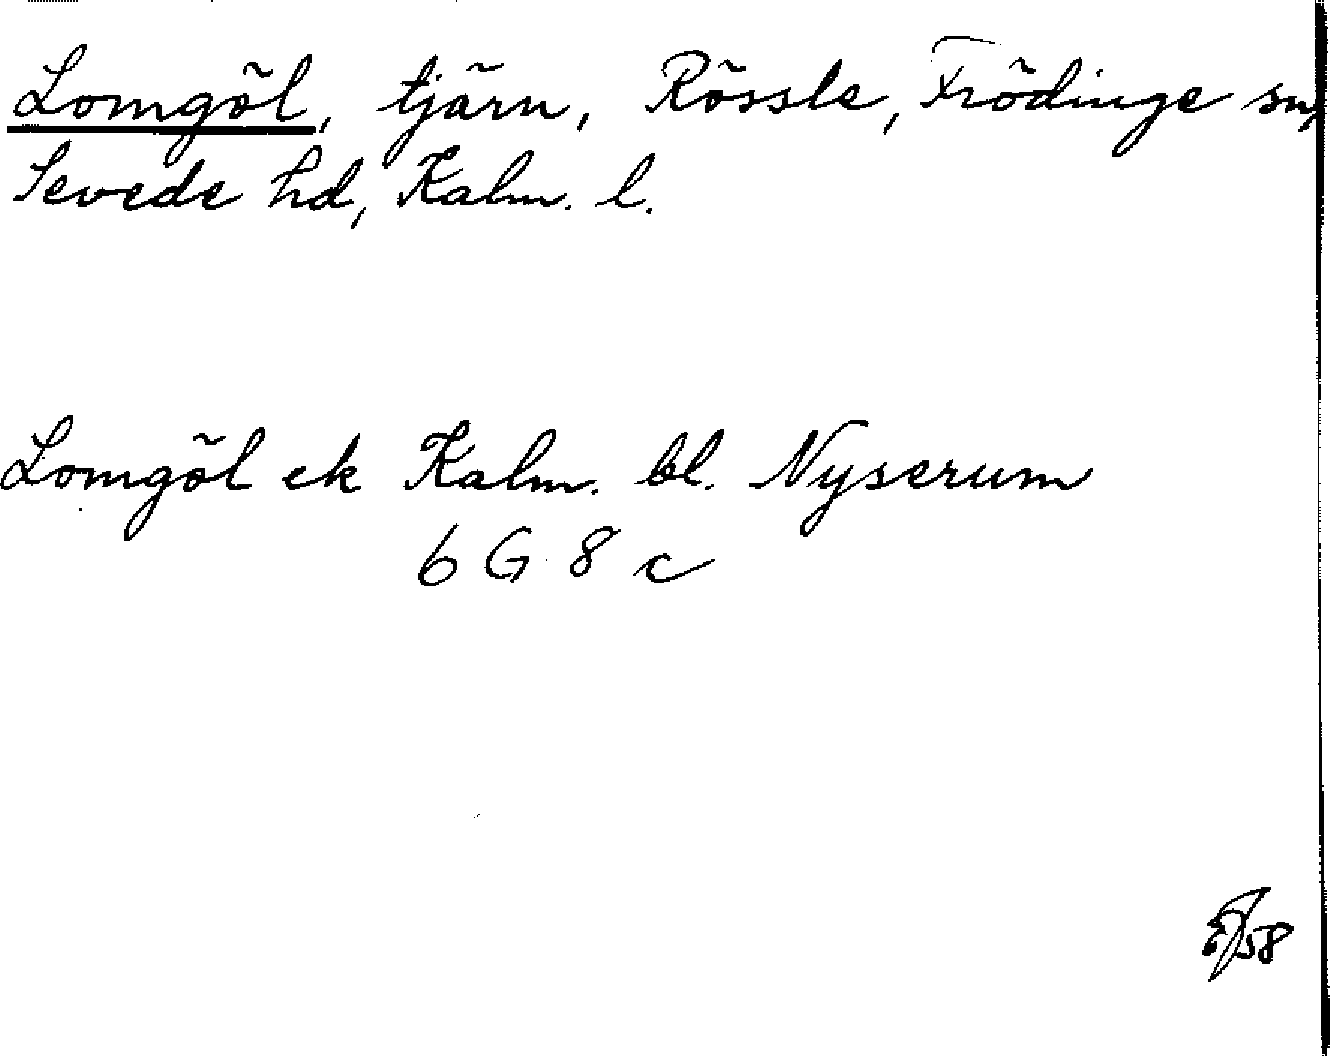 Lomgöl, tjärn, Rössle, Frödinge sn,
Sevede hd, Kalm. l.
Lomgöl ek Kalm. bl. Nyserum
6 G 8 c